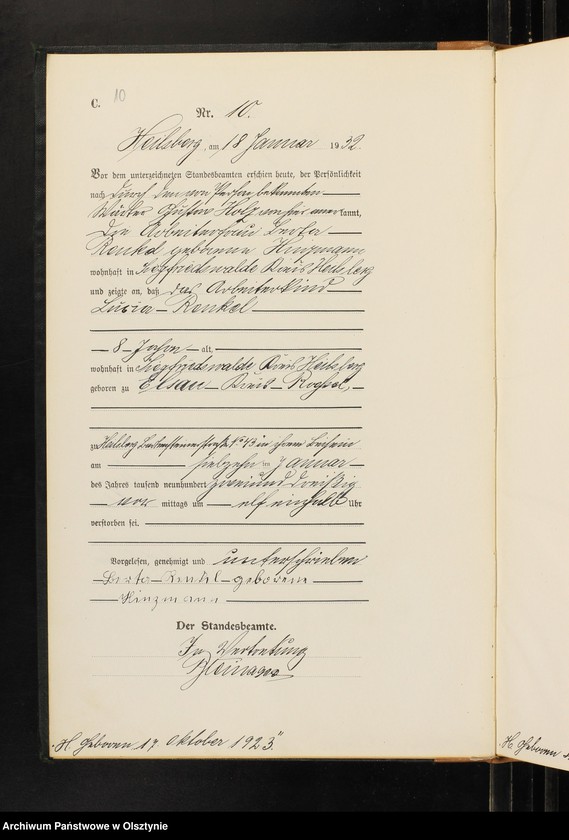 C. 10
Nr. 10.
Heilsberg, am 18 Januar 1932.
Vor dem unterzeichneten Standesbeamten erschien heute, der Persönlichkeit
nach durch den von Person bekannten
Gustav Holz von hier anerkannt,
die Arbeiterfrau Berta
Renkel geborene Hinzmann
wohnhaft in Siegfriedswalde Kreis Heilsberg
und zeigte an, daß das Arbeiterkind
Luzia Renkel
8 Jahre alt,
wohnhaft in Siegfriedswalde Kreis Heilsberg
geboren zu Elsau Kreis Rößel,
zu Heilsberg No 43 in ihrem Beisein
am siebzehn ten Januar
des Jahres tausend neunhundert zweiund dreißig
vor mittags um elf einhalb Uhr
verstorben sei.
Vorgelesen, genehmigt und unterschrieben
Berta Renkel geborene
Hinzmann
Der Standesbeamte.
In Vertretung
"H. Geboren 17 Oktober 1923."
H. Geboren
Archiwum Państwowe w Olsztynie